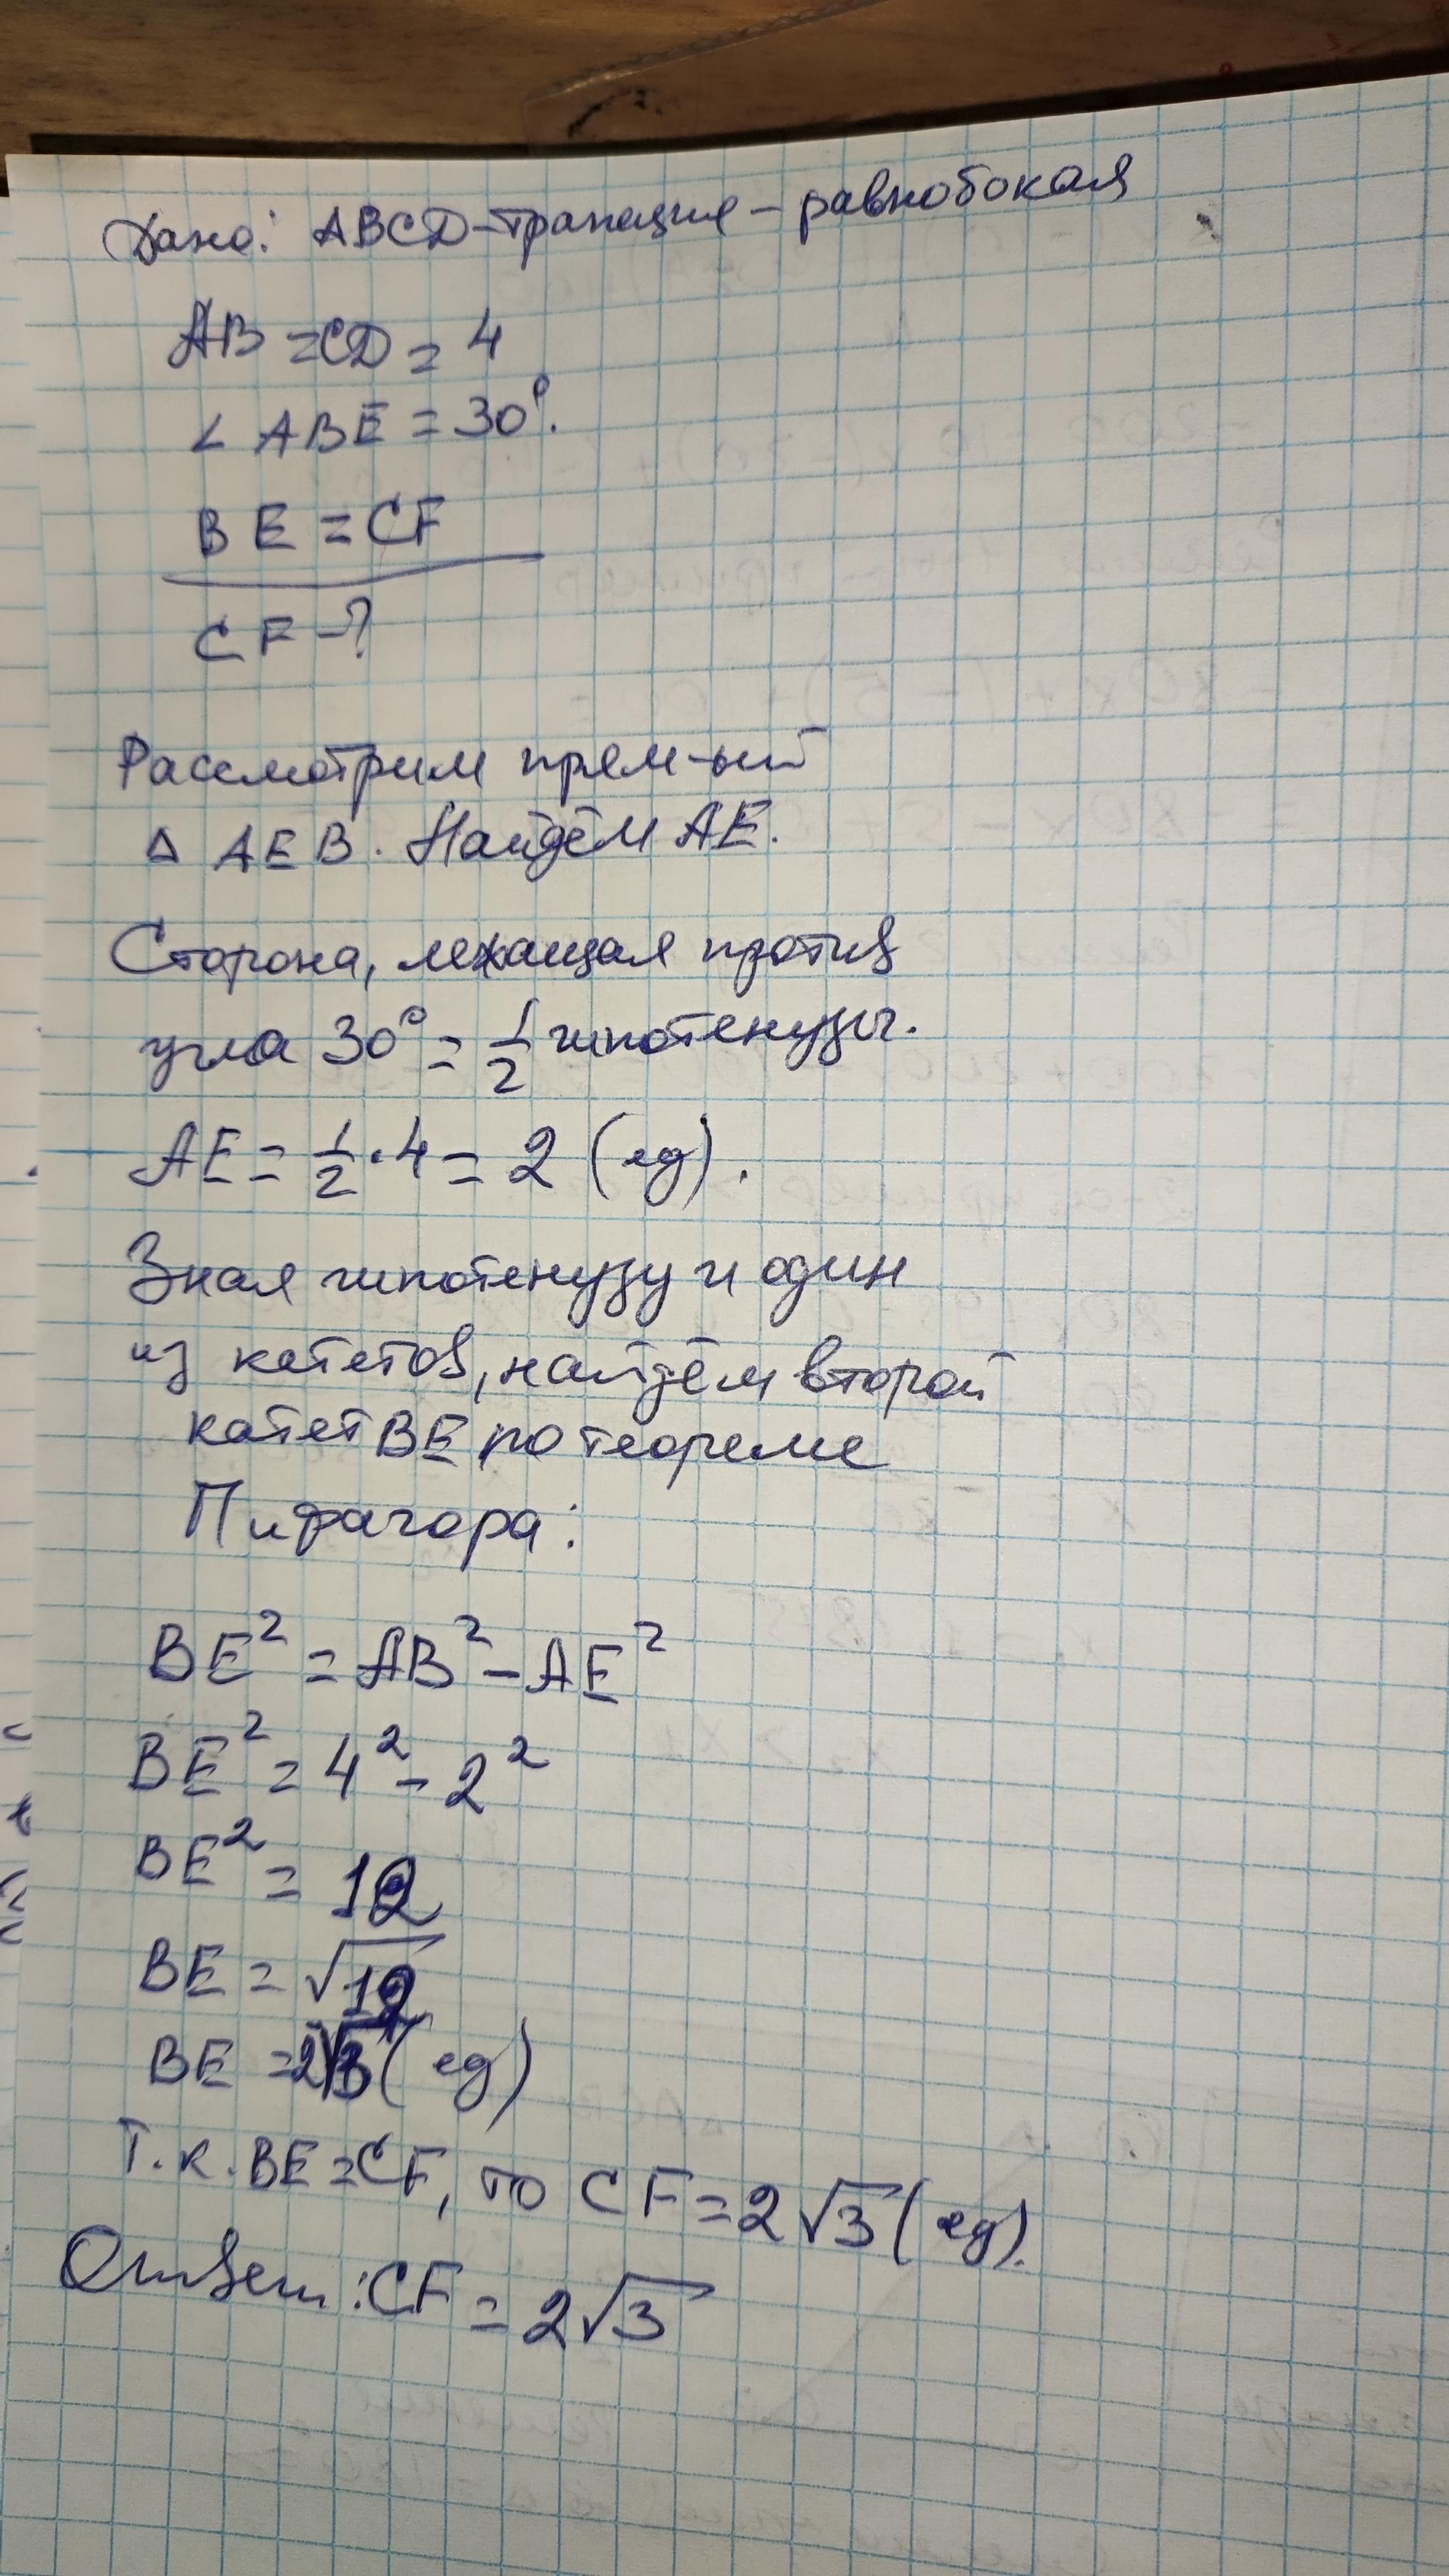 Дано: ABCD-трапеция - равнобокая
AB = CD = 4
∠ ABE = 30°.
BE = CF
CF -?
Рассмотрим прям-ый
Δ AEB. Найдём AE.
Сторона, лежащая против
угла 30° = 1/2 гипотенузы.
AE = 1/2 · 4 = 2 (ед).
Зная гипотенузу и один
из катетов, найдём второй
катет BE по теореме
Пифагора:
BE² = AB² - AE²
BE² = 4² - 2²
BE² = 12
BE = √12
BE = 2√3 (ед)
Т.к. BE = CF, то CF = 2√3 (ед).
Ответ: CF = 2√3